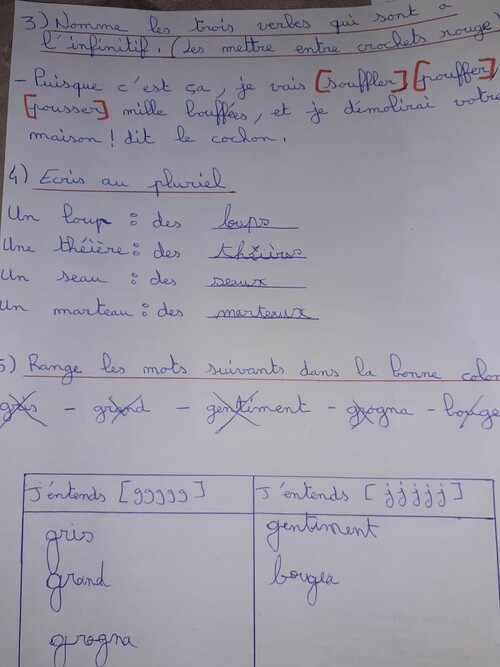 3) Nomme les trois verbes qui sont à
l'infinitif. (Les mettre entre crochets rouge)
- Puisque c'est ça, je vais [souffler], [pouffer],
[pousser] mille bouffées, et je démolirai votre
maison ! dit le cochon.
4) Ecris au pluriel
Un loup : des loups
Une théière : des théières
Un seau : des seaux
Un marteau : des marteaux
5) Range les mots suivants dans la bonne colon
gris - grand - gentiment - grogna - bouge
J'éntends [ggggg] J'entends [jjjjj]
gris gentiment
grand bougea
grogna